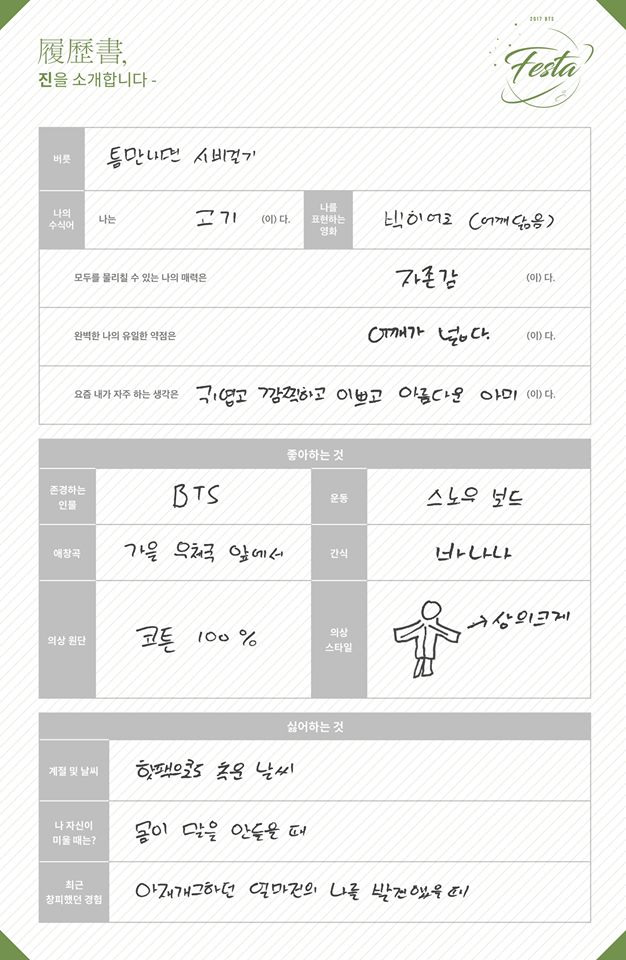 2017 BTS
Festa
履歷書,
진을 소개합니다 -
버릇
틈만나면 시비걸기
나의
수식어
나는
고기
(이) 다.
나를
표현하는
영화
빅히어로 (어깨닮음)
모두를 물리칠 수 있는 나의 매력은
자존감
(이) 다.
완벽한 나의 유일한 약점은
어깨가 넓다.
(이) 다.
요즘 내가 자주 하는 생각은
귀엽고 깜찍하고 이쁘고 아름다운 아미
(이) 다.
좋아하는 것
존경하는
인물
BTS
운동
스노우 보드
애창곡
가을 우체국 앞에서
간식
바나나
의상 원단
코튼 100 %
의상
스타일
→ 상의크게
싫어하는 것
계절 및 날씨
핫팩으로도 추운 날씨
나 자신이
미울 때는?
몸이 말을 안들을 때
최근
창피했던 경험
아재개그하던 얼마전의 나를 발견했을 때